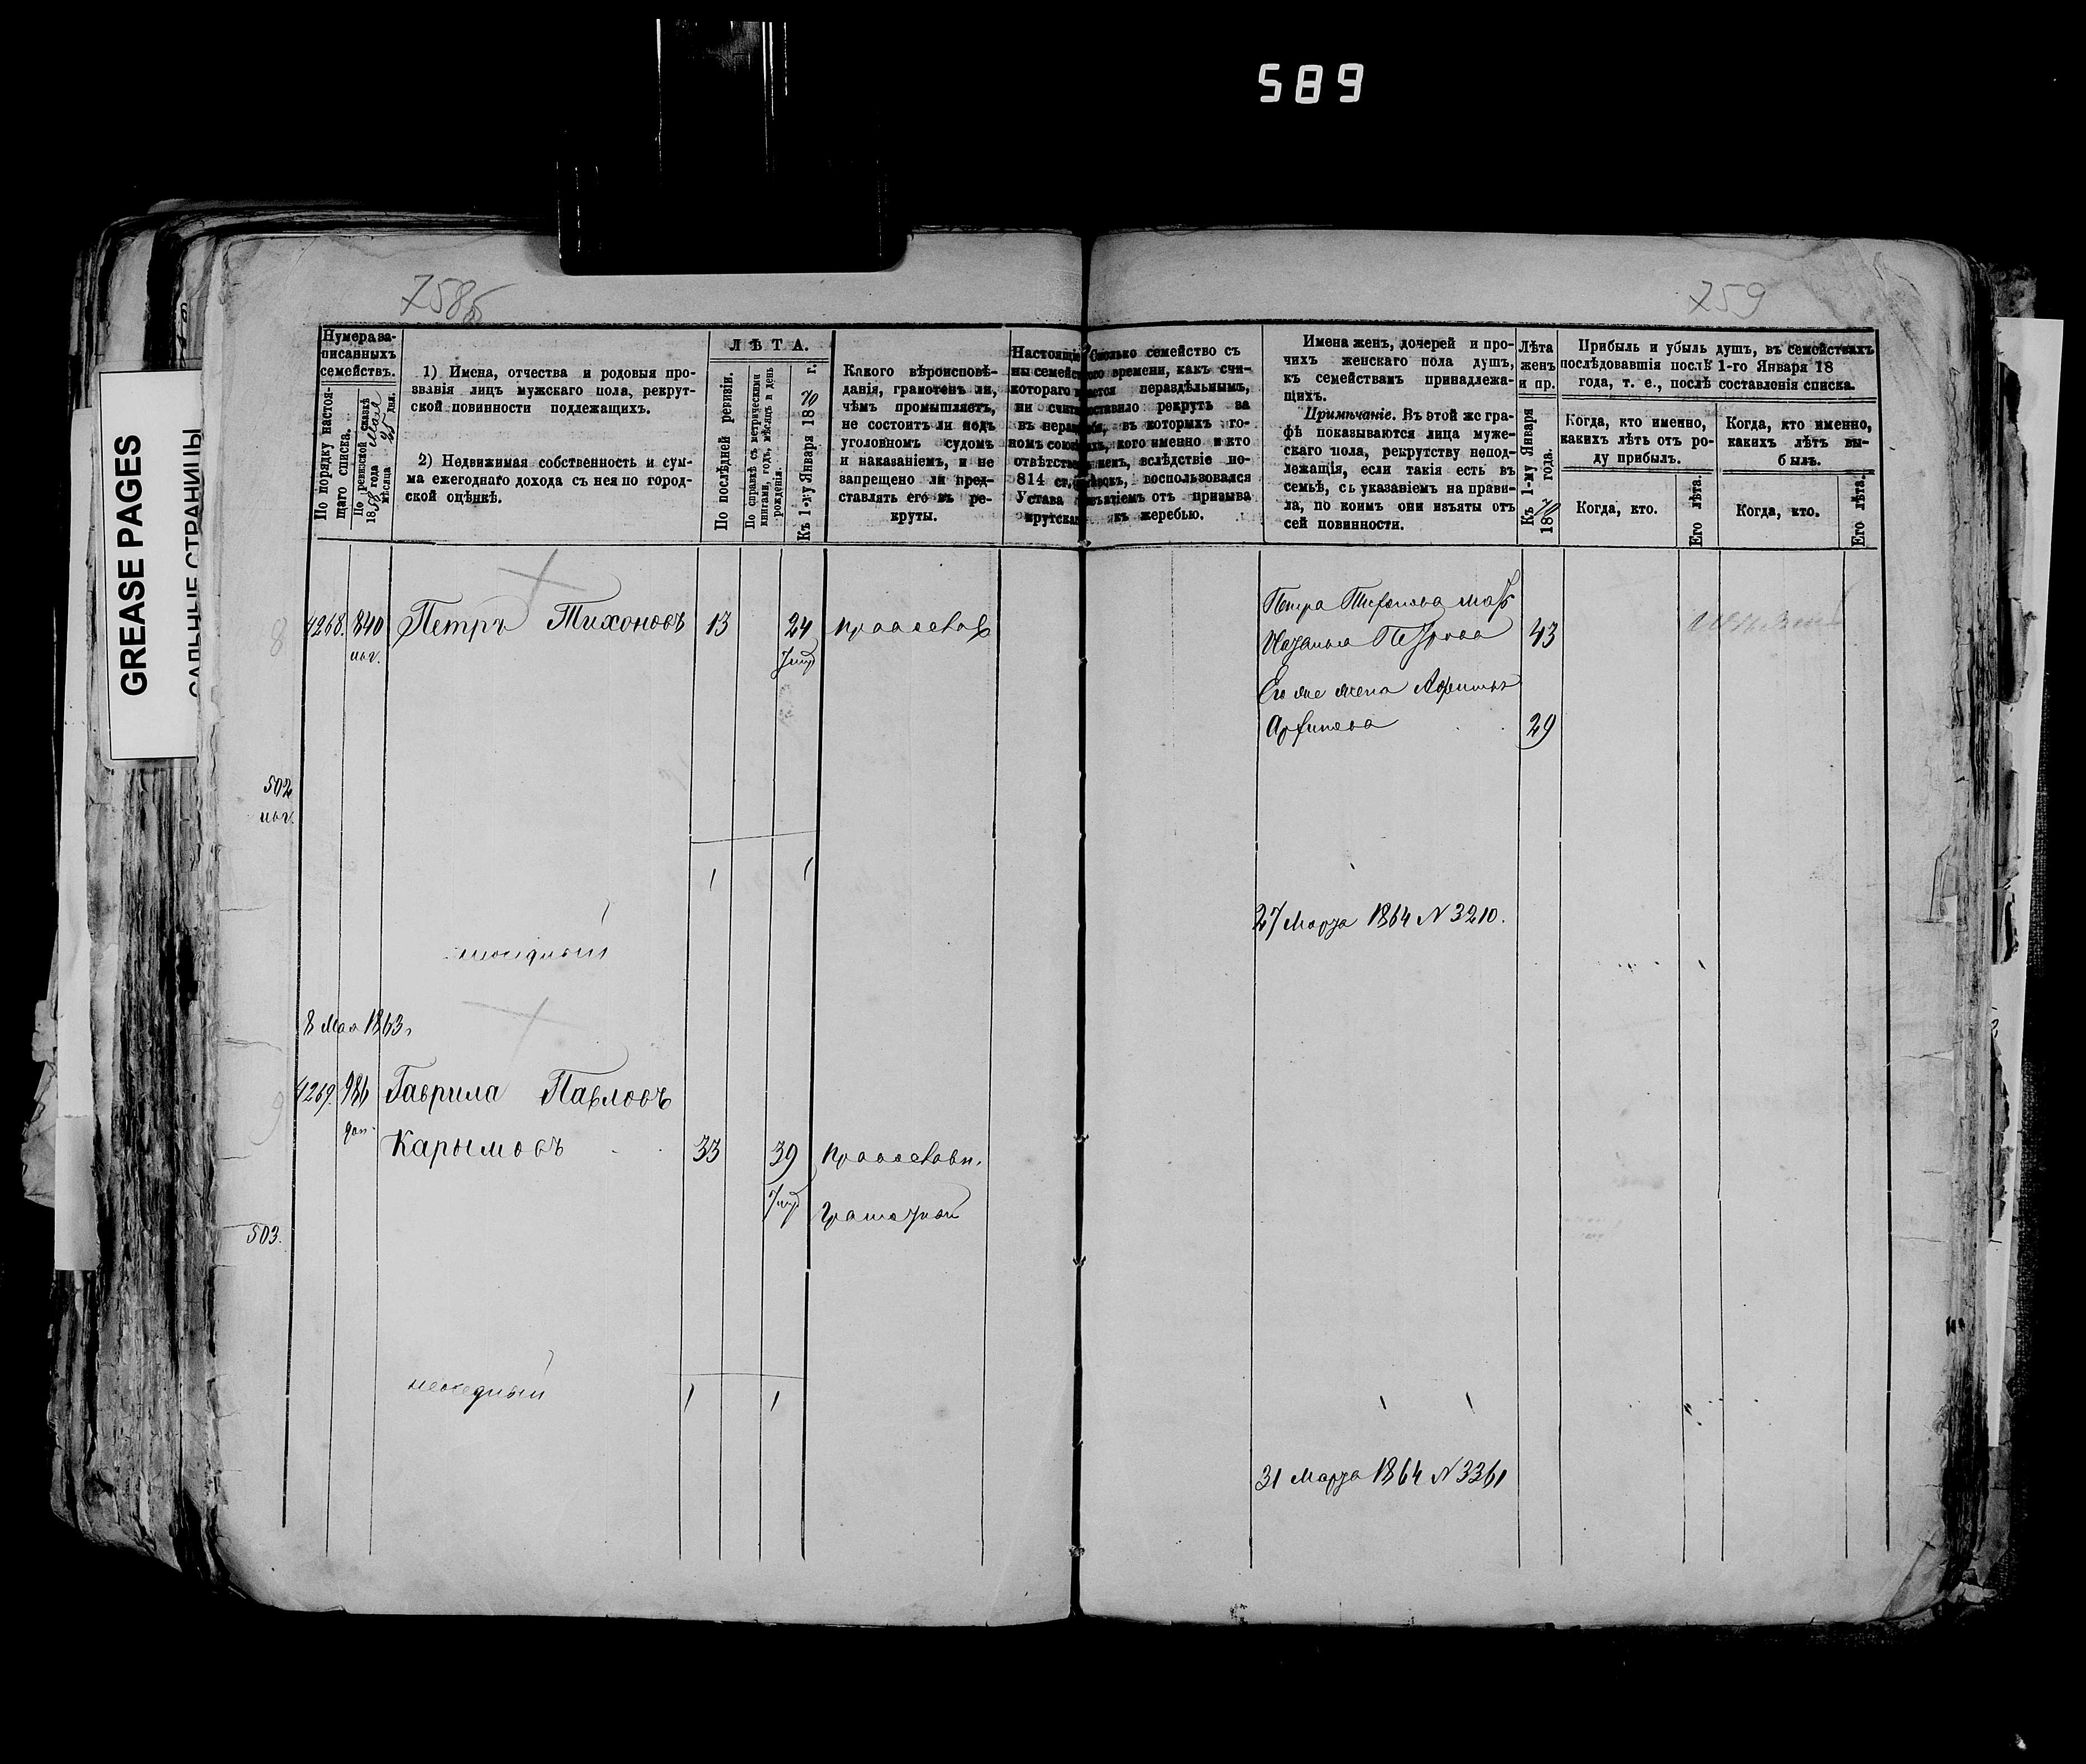 589
GREASE PAGES
САЛЬНЫЕ СТРАНИЦЫ
758б
759
Нумера за-
писанныхъ
семействъ.
По порядку настоя-
щаго списка.
По ревизской сказкѣ
1858 года мѣсяца Мая 25 дня.
1) Имена, отчества и родовыя про-
званія лицъ мужскаго пола, рекрут-
ской повинности подлежащихъ.
2) Недвижимая собственность и сум-
ма ежегоднаго дохода съ нея по город-
ской оцѣнкѣ.
ЛѢТА.
По послѣдней ревизіи.
По справкѣ съ метрическими
книгами, годъ, мѣсяцъ и день
рожденія.
Къ 1-му Января 1870 г.
Какого вѣроисповѣ-
данія, грамотенъ ли,
чѣмъ промышляетъ,
не состоитъ ли подъ
уголовномъ судомъ
и наказаніемъ, и не
запрещено ли пред-
ставлять его въ ре-
круты.
Настоящі
ны семейс
котораго
ни счит
въ нераз
номъ союз
отвѣтств
814 ст.
Устава
крутска
Сколько семейство съ
го времени, какъ счи-
тается нераздѣльнымъ,
оставило рекрутъ за
въ которыхъ го-
кого именно и кто
вслѣдствіе по-
воспользовался
изъятіемъ отъ призыва
къ жеребью.
Имена женъ, дочерей и про-
чихъ женскаго пола душъ,
къ семействамъ принадлежа-
щихъ.
Примѣчаніе. Въ этой же гра-
фѣ показываются лица муже-
скаго пола, рекрутству непод-
лежащія, если такія есть въ
семьѣ, съ указаніемъ на прави-
ла, по коимъ они изъяты отъ
сей повинности.
Лѣта
женъ
и пр.
Къ 1-му Января
1870 года.
Прибыль и убыль душъ, въ семействахъ
послѣдовавшія послѣ 1-го Января 18
года, т. е., послѣ составленія списка.
Когда, кто именно,
какихъ лѣтъ отъ ро-
ду прибылъ.
Когда, кто именно,
какихъ лѣтъ вы-
былъ.
Когда, кто.
Его лѣта.
Когда, кто.
Его лѣта.
8
4268. 840 Петръ Тихоновъ 13 24 православ
Петра Тихонова мать
Наталья Петрова 43
Его же жена
Архипова 29
502
1 1
27 Марта 1864 N 3210.
неоседлый
8 Мая 1863
9
4269. 986 Гаврила Павловъ
доп.
Карымовъ 33 39 православн.
грамотной
503.
неоседлый 1 1
31 Марта 1864 N 3361